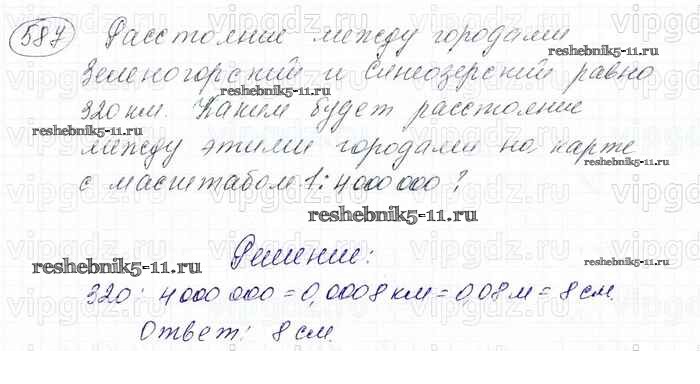 587 Расстояние между городами
Зеленогорский и Синеозерский равно
320 км. Каким будет расстояние
между этими городами на карте
с масштабом 1:4000 000?
Решение:
320 : 4000 000 = 0,0008 км = 0,08 м = 8 см.
Ответ: 8 см.
vipgdz.com
reshebnik5-11.ru
reshebnik5-11.ru
reshebnik5-11.ru
reshebnik5-11.ru
reshebnik5-11.ru
reshebnik5-11.ru
reshebnik5-11.ru